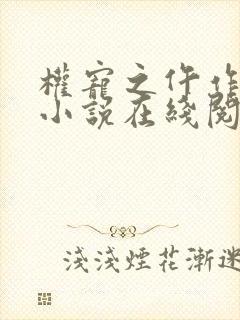 權寵之仵作
小說在綫閱
淺淺煙花漸迷